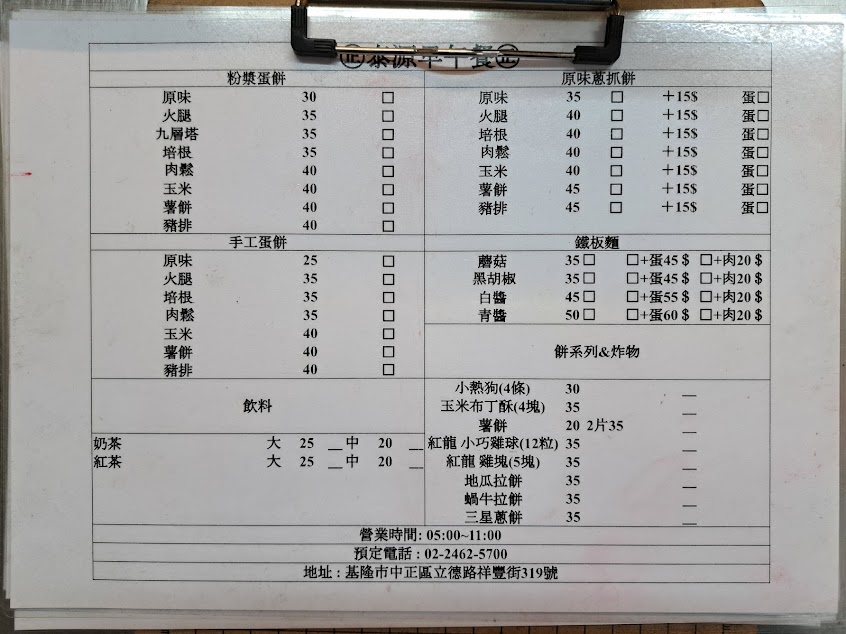 ㊣泰源早午餐㊣
粉漿蛋餅
原味 30 □
火腿 35 □
九層塔 35 □
培根 35 □
肉鬆 40 □
玉米 40 □
薯餅 40 □
豬排 40 □
手工蛋餅
原味 25 □
火腿 35 □
培根 35 □
肉鬆 35 □
玉米 40 □
薯餅 40 □
豬排 40 □
飲料
奶茶 大 25 __中 20 __
紅茶 大 25 __中 20 __
原味蔥抓餅
原味 35 □ +15$ 蛋□
火腿 40 □ +15$ 蛋□
培根 40 □ +15$ 蛋□
肉鬆 40 □ +15$ 蛋□
玉米 40 □ +15$ 蛋□
薯餅 45 □ +15$ 蛋□
豬排 45 □ +15$ 蛋□
鐵板麵
蘑菇 35□ □+蛋45＄ □+肉20＄
黑胡椒 35□ □+蛋45＄ □+肉20＄
白醬 45□ □+蛋55＄ □+肉20＄
青醬 50□ □+蛋60＄ □+肉20＄
餅系列&炸物
小熱狗(4條) 30 __
玉米布丁酥(4塊) 35 __
薯餅 20 2片35 __
紅龍 小巧雞球(12粒) 35 __
紅龍 雞塊(5塊) 35 __
地瓜拉餅 35 __
蝸牛拉餅 35 __
三星蔥餅 35 __
營業時間: 05:00~11:00
預定電話 : 02-2462-5700
地址 : 基隆市中正區立德路祥豐街319號